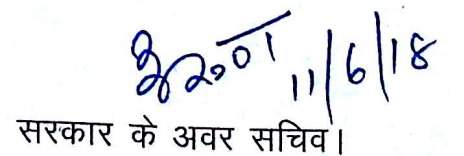 11/6/18
सरकार के अवर सचिव।